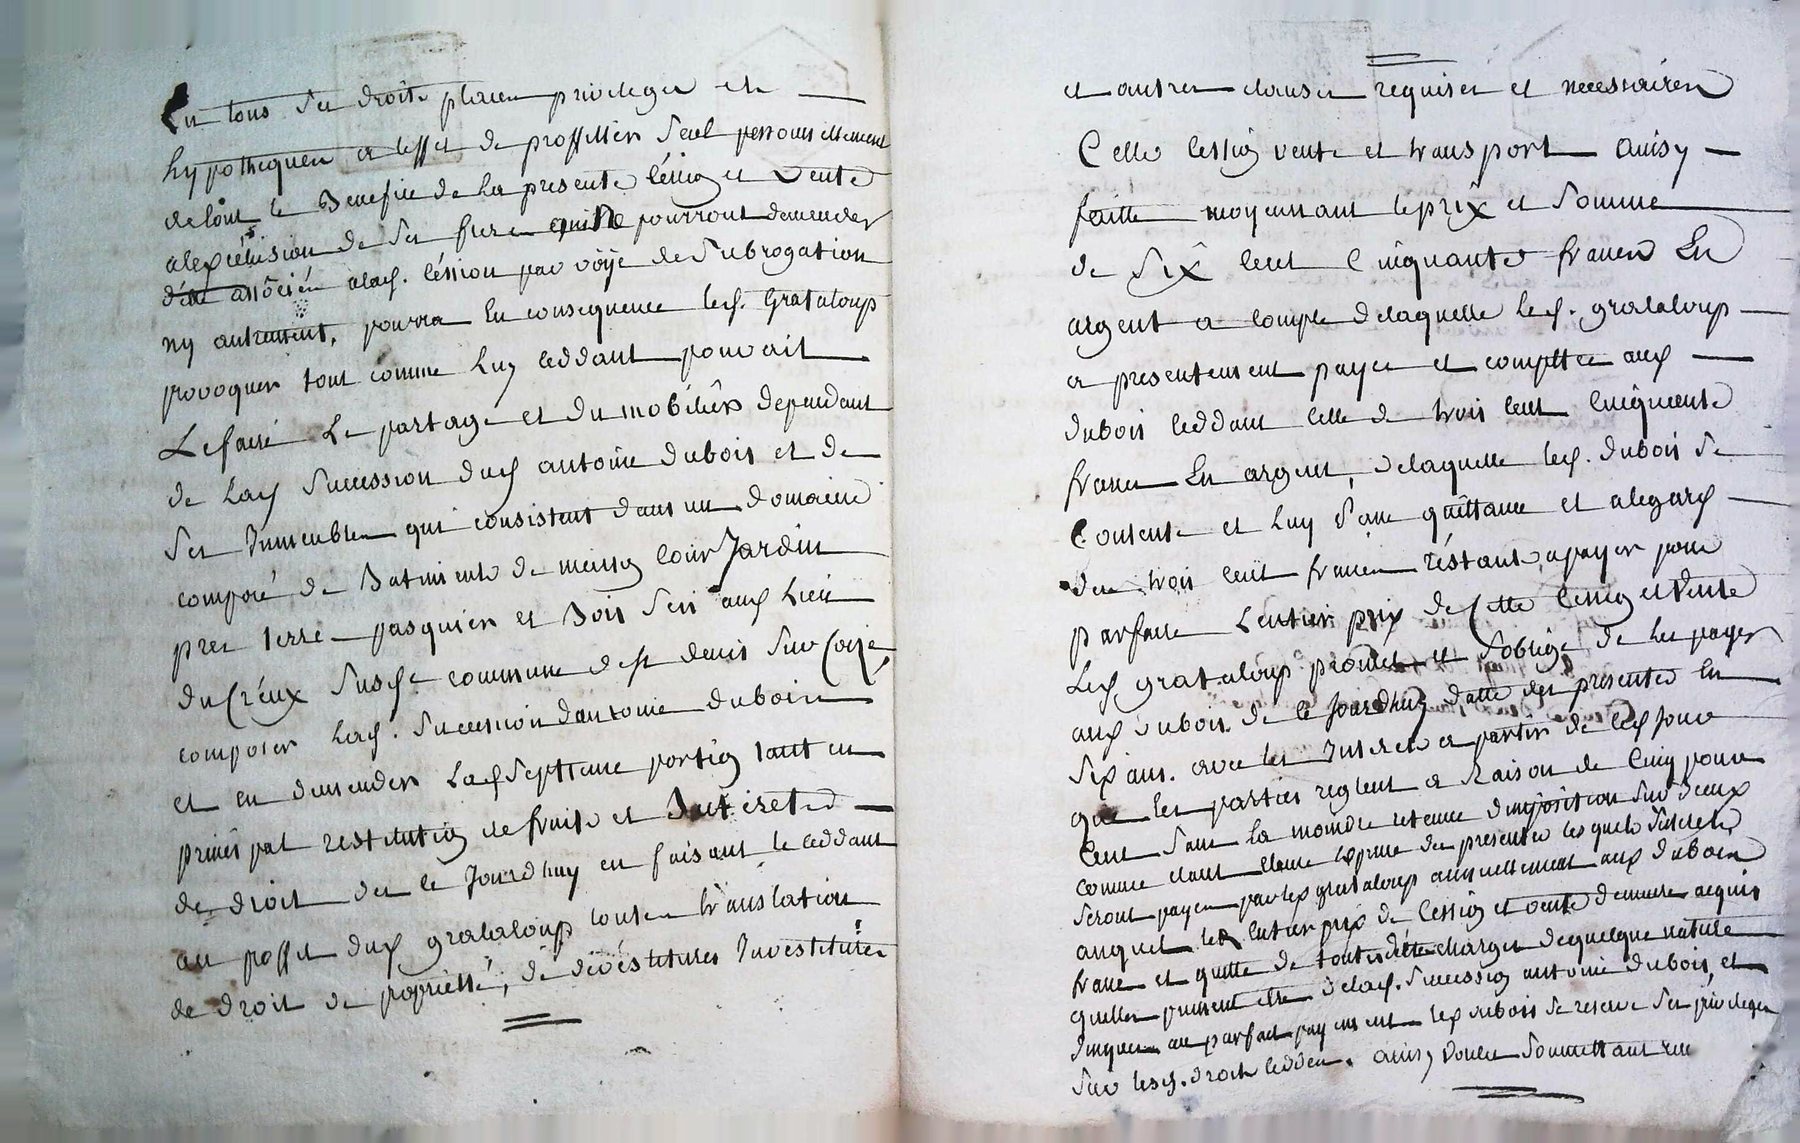 En tous ses droits places privileges et
hypotheques a leffet de proffitter seul personnellement
de tout le Benefice de la presente cession et vente
alexclusion de ses freres qui ne pourront demender
d'etre associés alad. cession par voÿe de subrogation
ny autrement, pourra En consequence led. Grataloup
provoquer tout comme Luy ceddant pouvait
Le faire Le partage et du mobilier dependant
de Lad succession dud antoine dubois et de
ses Immeubles qui consistent dans un domaine
composé de Batiments de maison Cour Jardin
pres terre pasquier et Bois sis aud Lieu
du Creux susd.e commune de st denis sur Coize,
composer Lad. succession d'antoine dubois
et en demender Lad septieme portion tant en
principal restitution de fruits et Interets
de droit des ce Jourdhuy en faisant le ceddant
au proffit dud grataloup toutes translation
de droit de proprietté, de devestitures Investitures
et autres clauses requises et necessaires
Cette cession vente et transport ainsy
faitte moyennant le prix et somme
de six cent Cinquante francs En
argent a compte delaquelle led. grataloup
a presentement payé et comptté aud
dubois ceddant celle de trois cent cinquante
francs En argent, delaquelle led. dubois se
Contente et Luy passe quittance et alegard
des trois cent francs réstants apayer pour
parfaire Lentier prix de Cette cession et vente
Led grataloup promet et soblige de les payer
aud dubois de ce Jourdhuy datte des presentes En
six ans. avec les Interets a partir de ced jour
que les parties reglent a Raison de Cinq pour
Cent sans la moindre retenue d'imposition sur d'ceux
comme etant clause expresse des presentes lesquels Interets
seront payés par led grataloup annuellement aud dubois
auquel led Entier prix de Cession et vente demeure acquis
franc et quitte de toutes dettes charges de quelque nature
quelles puissent etre delad. succession antoine dubois, et
jusques au parfait payement led dubois se reserve ses privileges
sur lesd. droits ceddés. ainsy voulu soumettant